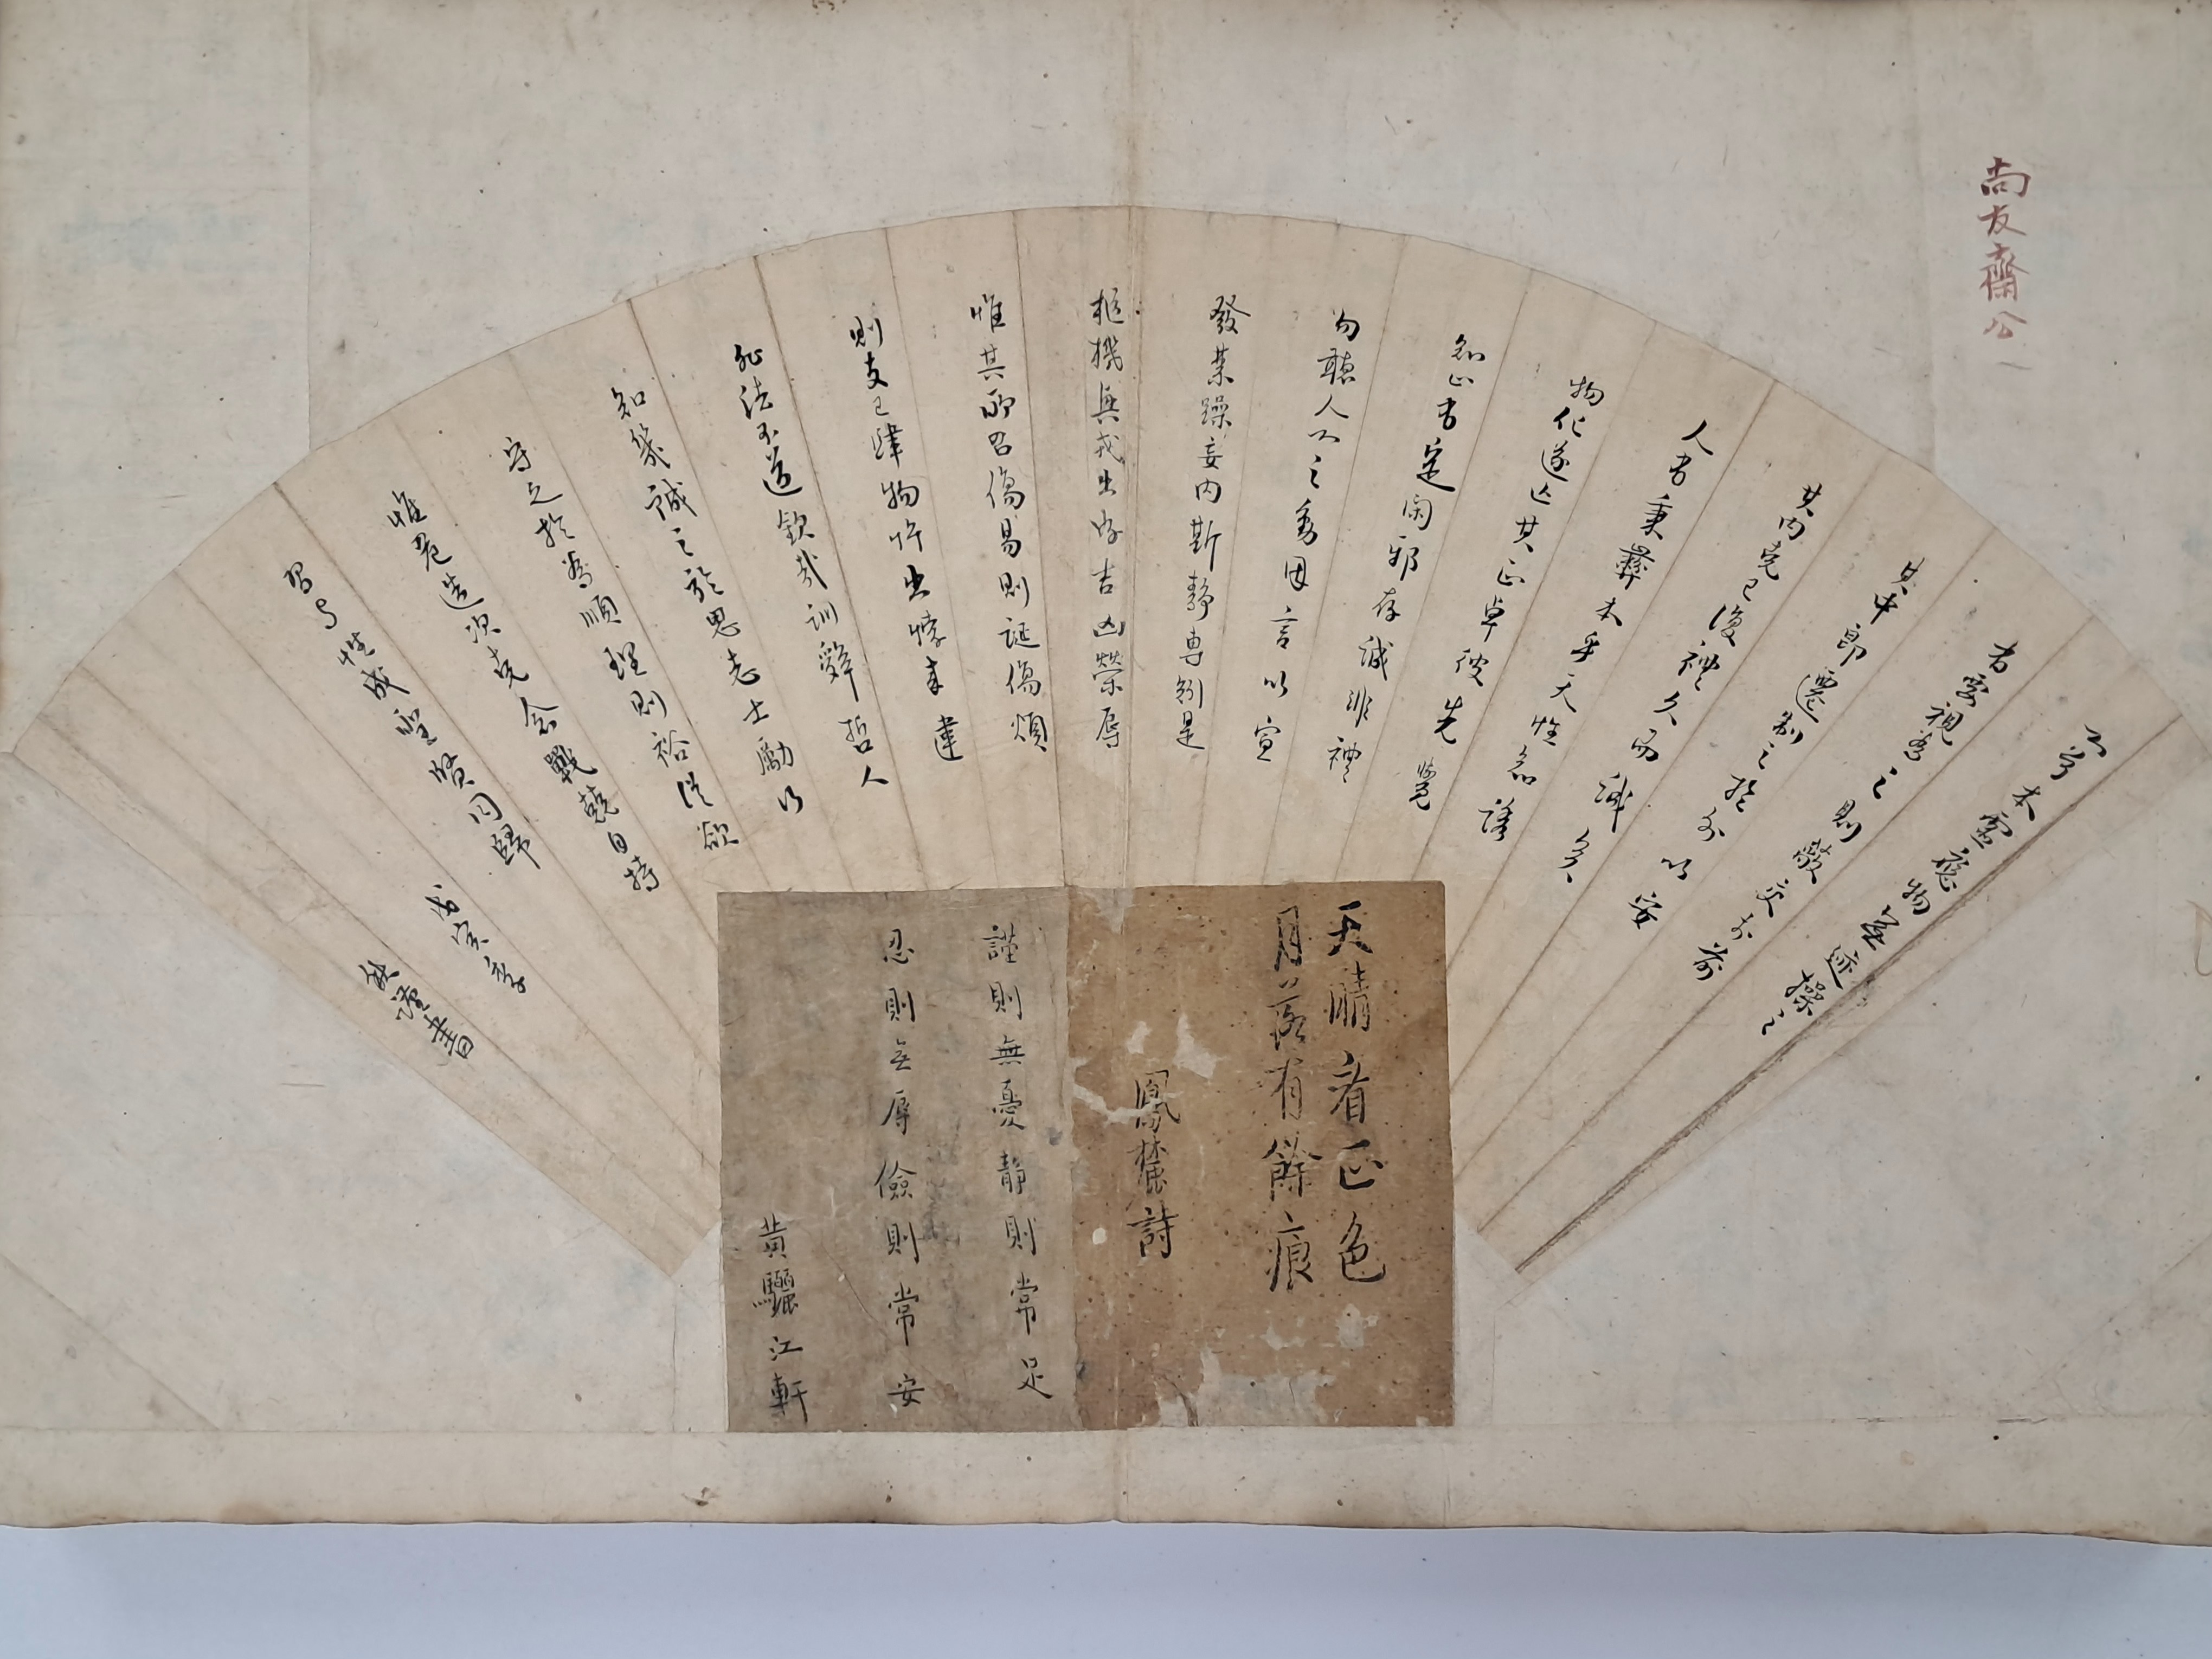 尚友齋公
心兮本虛應物無迹操之
有要視爲之則蔽交於前
其中即遷制之於外以安
其內克己復禮久而誠矣
人有秉彝本乎天性知誘
物化遂亡其正卓彼先覺
知止有定閑邪存誠非禮
勿聽人心之動因言以宣
發禁躁妄內斯靜專矧是
樞機興戎出好吉凶榮辱
惟其所召傷易則誕傷煩
則支己肆物忤出悖來違
非法不道欽哉訓辭哲人
知幾誠之於思志士勵行
守之於爲順理則裕從欲
惟危造次克念戰兢自持
習与性成聖賢同歸
書
天晴看正色
月落有餘痕
鳳麓詩
謹則無憂靜則常足
忍則無辱儉則常安
黃驪江軒